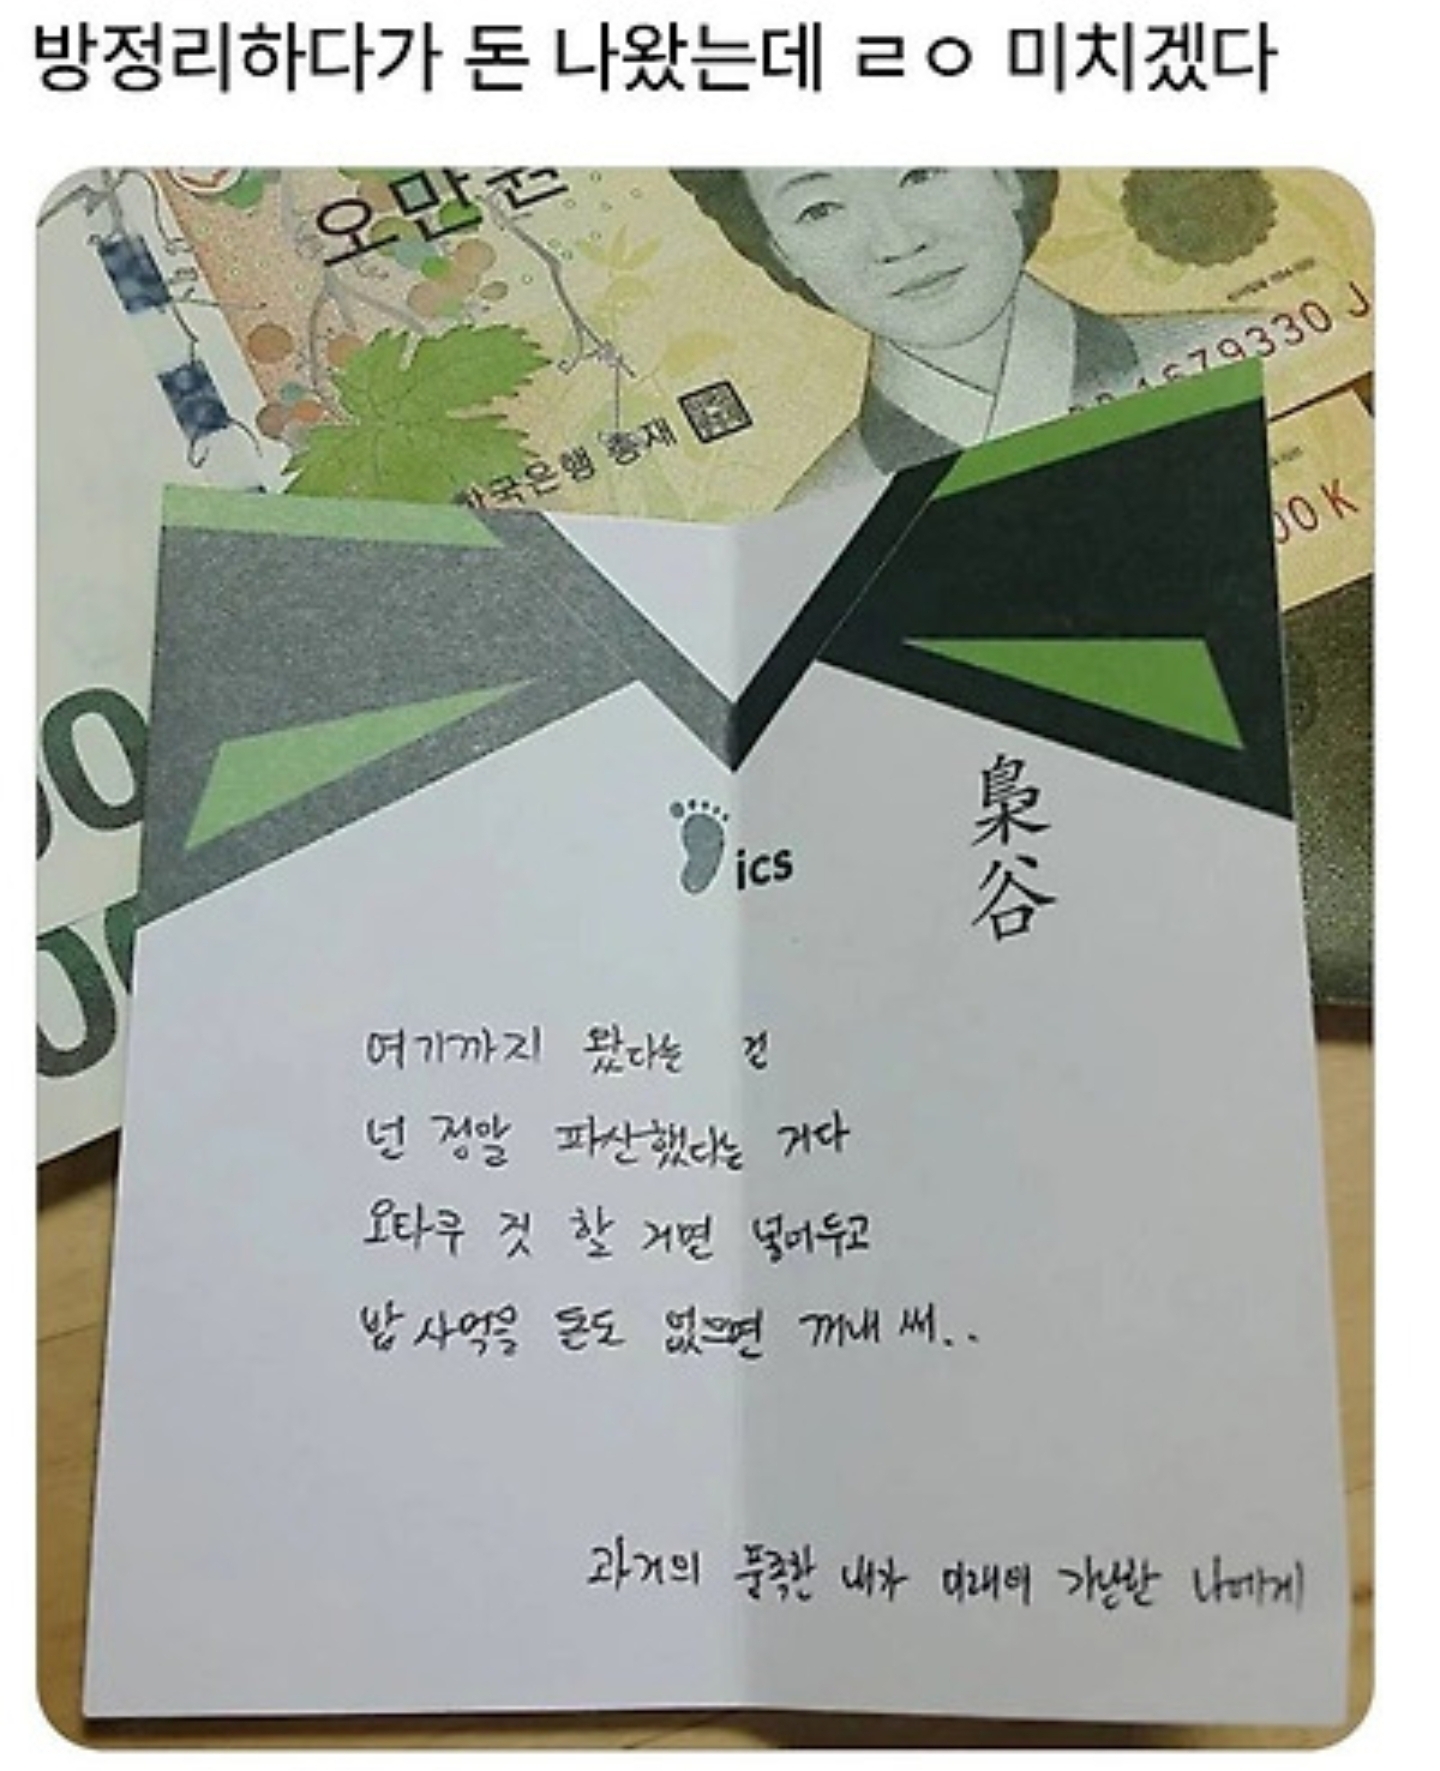 방정리하다가 돈 나왔는데 ㄹㅇ 미치겠다
오만원
한국은행 총재
79330 J
00 K
00
00
ics
梟谷
여기까지 왔다는 건
넌 정말 파산했다는 거다
오타쿠 짓 할 거면 넣어두고
밥 사먹을 돈도 없으면 꺼내 써..
과거의 풍족한 내가 미래의 가난한 나에게